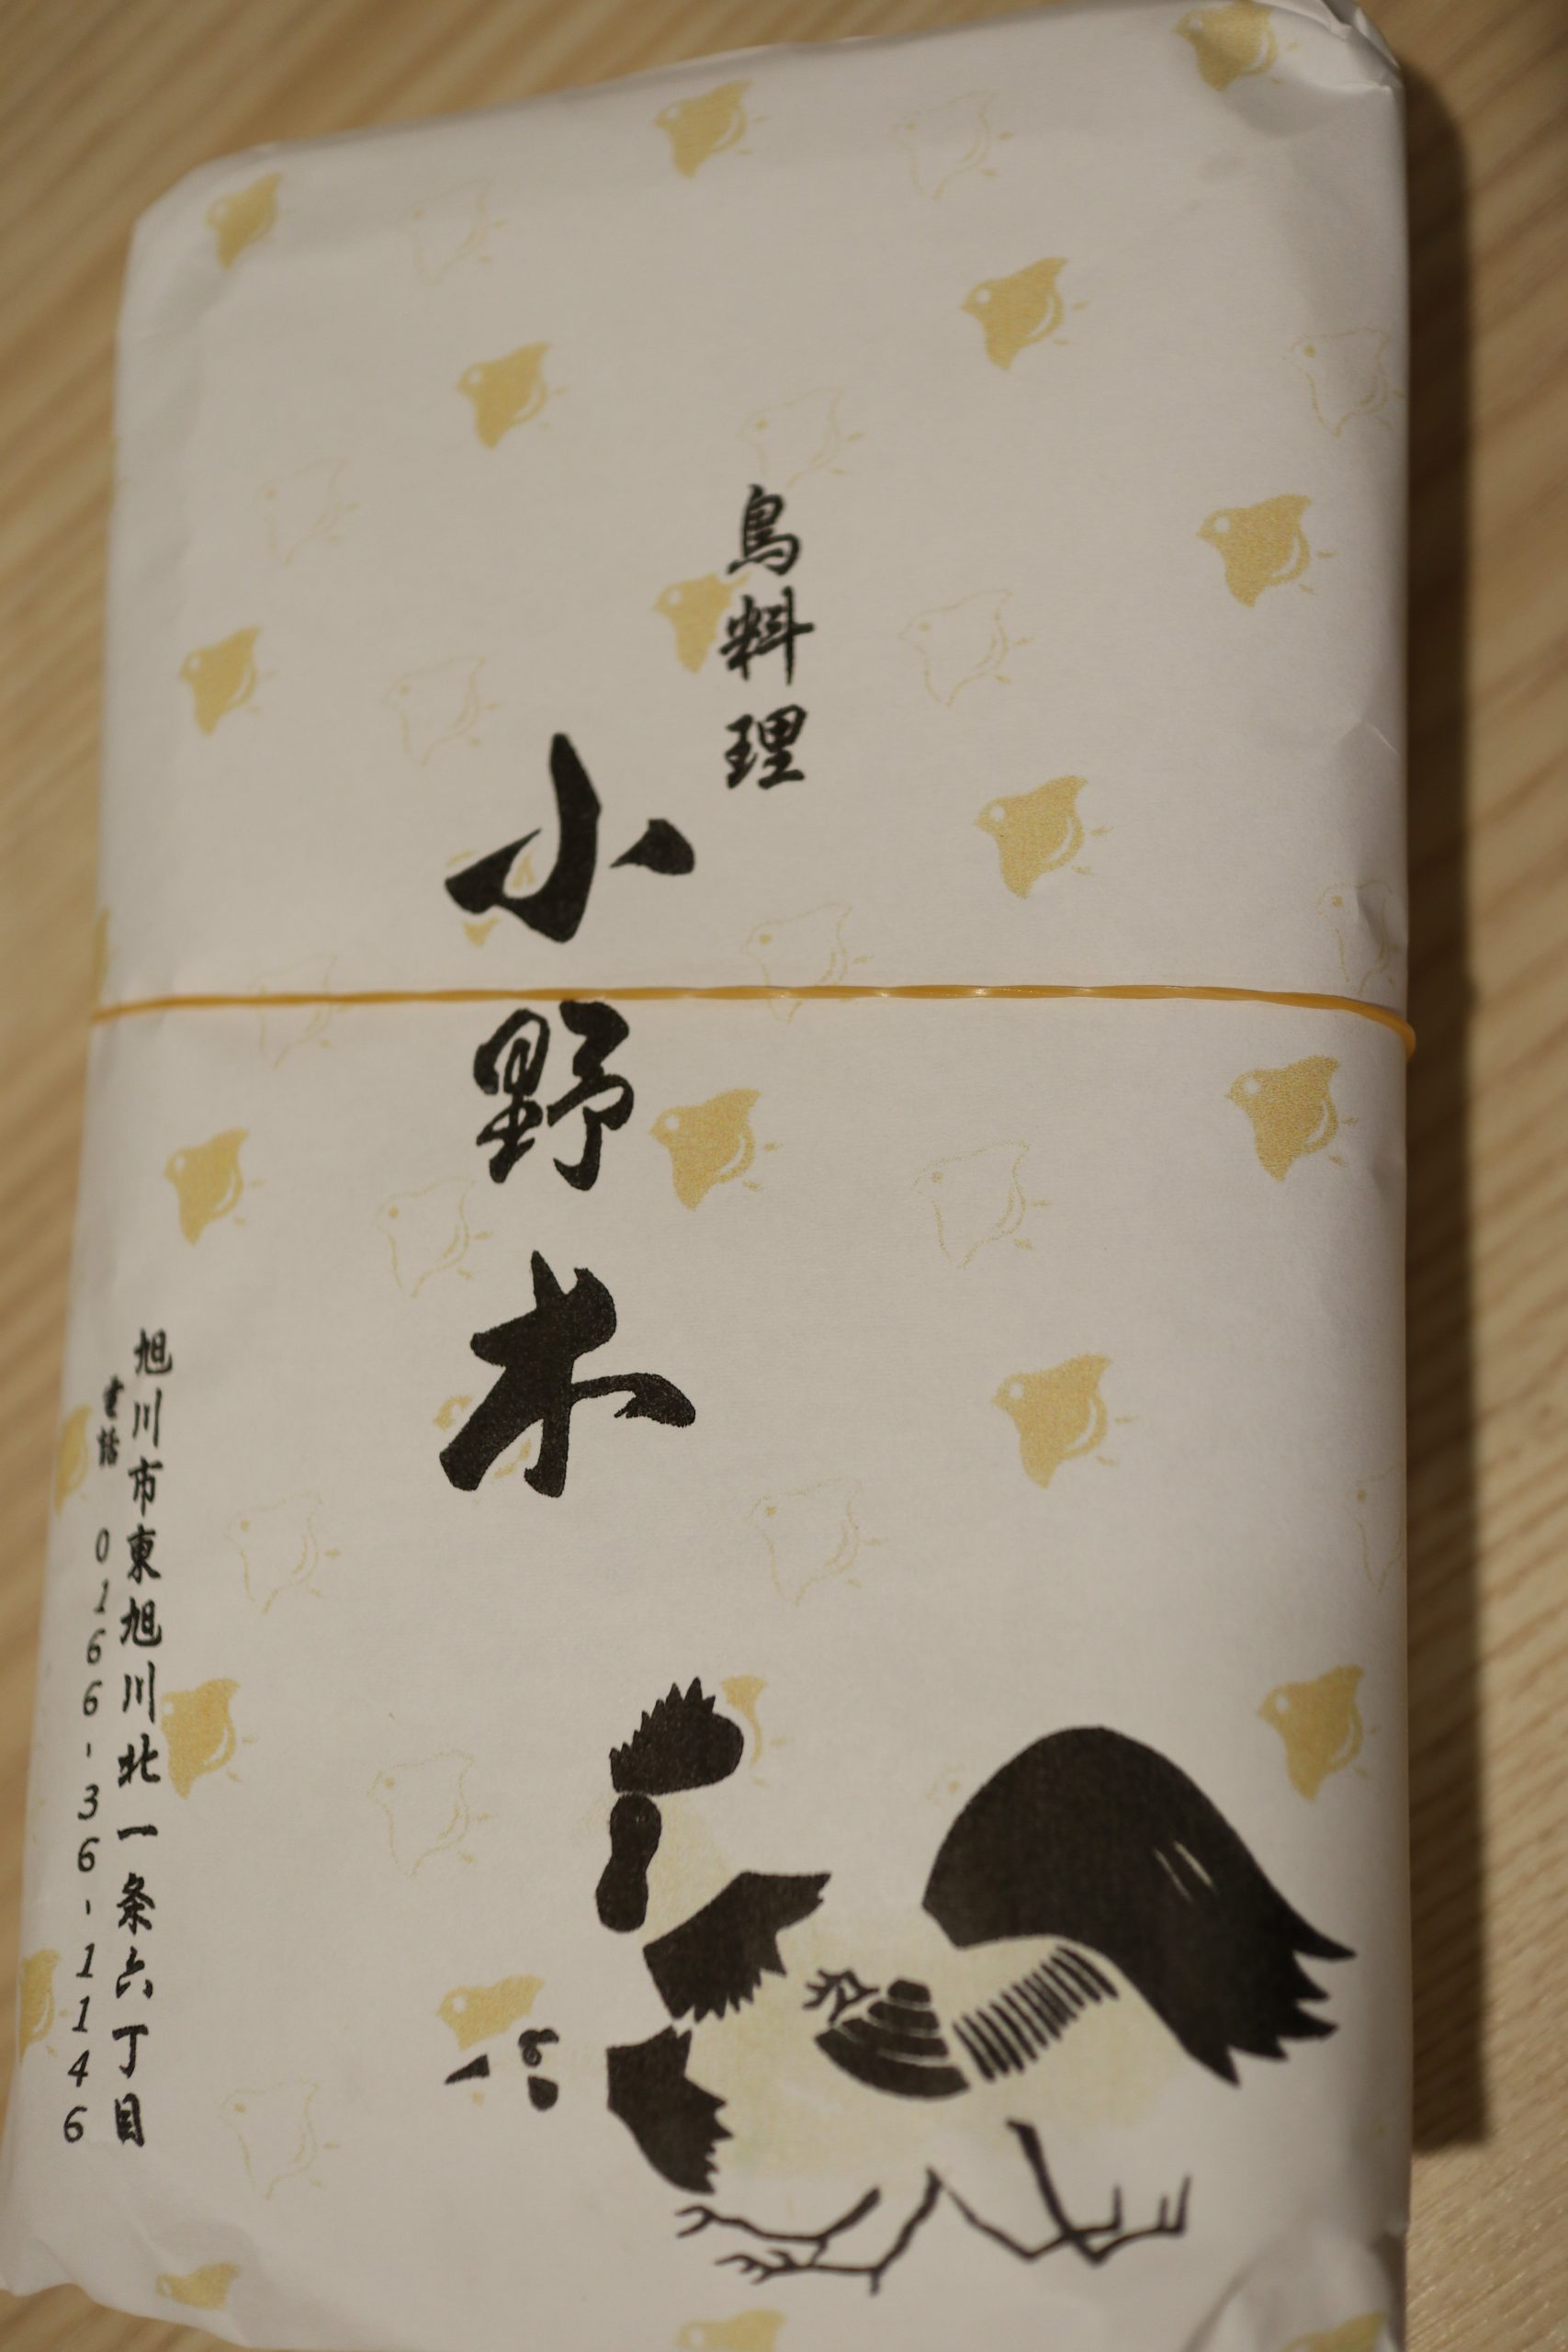 鳥料理
小野木
旭川市東旭川北一条六丁目
電話 0166-36-1146